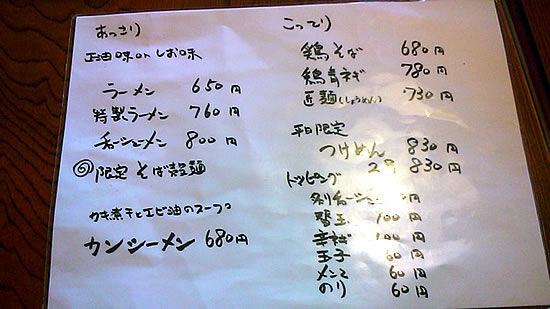 あっさり
正油味 or しお味
ラーメン 650円
特製ラーメン 760円
チャーシューメン 800円
限定 そば
カキ煮干とエビ油のスープ
カンシーメン 680円
こってり
鶏そば 680円
鶏青ネギ 780円
匠麺(しょうめん) 730円
平日限定
つけめん 830円
830円
トッピング
チャーシュー 円
替玉 100円
100円
玉子 60円
メンマ 60円
のり 60円